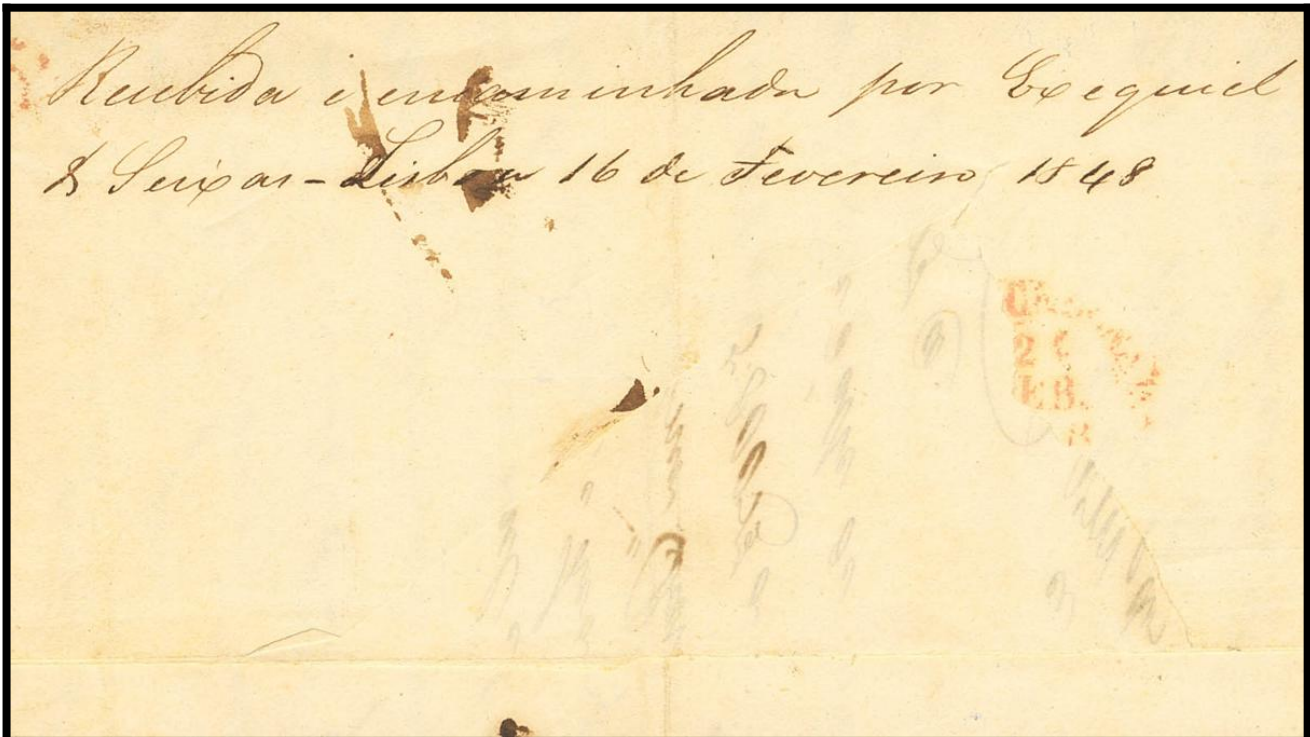 Recebida i encaminhada por Exequiel
& Seixas - Lisboa 16 de Fevereiro 1848